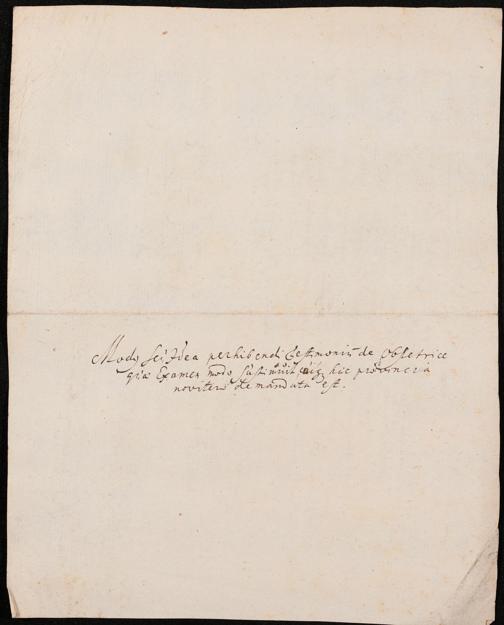 Modg sei Idea perhibendi testimonii de obstetrice
quæ Examen modo sustinuit, hic provincia
noviter demandata est.